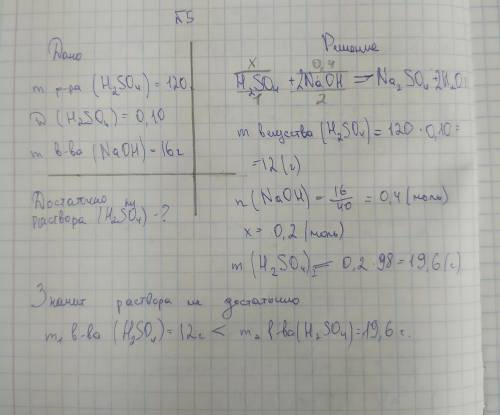 №5
Дано
m р-ра (H₂SO₄) = 120
ω (H₂SO₄) = 0,10
m в-ва (NaOH) - 16 г
Достаточно ли
раствора (H₂SO₄) - ?
Решение
x 0,4
H₂SO₄ + 2NaOH = Na₂SO₄ + 2H₂O
1 2
m вещества (H₂SO₄) = 120 · 0,10 =
= 12 (г)
n (NaOH) = 16/40 = 0,4 (моль)
x = 0,2 (моль)
m (H₂SO₄) = 0,2 · 98 = 19,6 (г)
Значит раствора не достаточно
m₁ в-ва (H₂SO₄) = 12 г < m₂ в-ва (H₂SO₄) = 19,6 г.